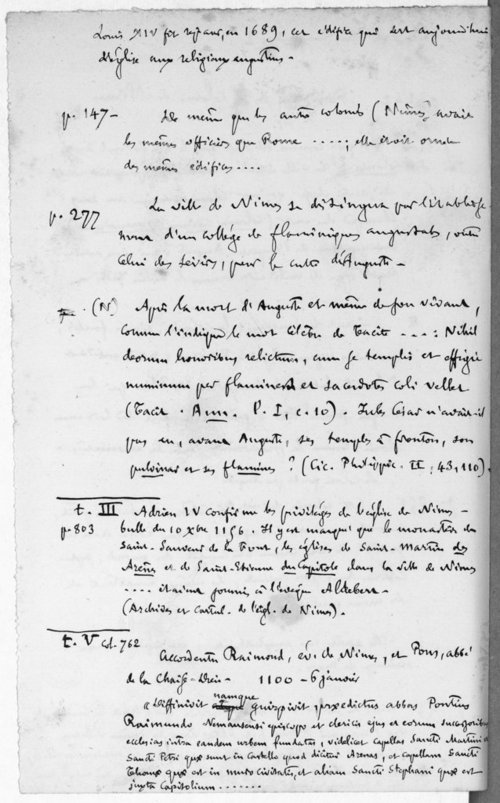 Louis XIV fit réparer, en 1689, cet édifice qui sert aujourd'hui
d'église aux religieux augustins.
p. 147 — De même que les autres colonies (Nîmes) avait
les mêmes officiers que Rome .....; elle était ornée
des mêmes édifices....
p. 277 La ville de Nîmes se distingua par l'établisse-
ment d'un collége de flaminiques augustales, outre
celui des sévirs, pour le culte d'Auguste —
(N) Après la mort d'Auguste et même de son vivant,
comme l'indique le mot célèbre de Tacite ....: Nihil
deorum honoribus relictum, cum se templis et effigie
numinum per flamines et sacerdotes coli vellet
(Tacit. Ann. P. I, c. 10). Jules César n'avait-il
pas eu, avant Auguste, ses temples à fronton, son
pulvinar et ses flamines ? (Cic. Philippic. II; 43, 110).
t. III Adrien IV confirme les priviléges de l'église de Nîmes —
p. 803 bulle du 10 Xbre 1156. Il y est marqué que le monastère de
Saint-Sauveur de la Font, les églises de Saint-Martin des
Arènes et de Saint-Etienne du Capitole dans la ville de Nîmes
.... étaient soumis à l'évêque Aldebert.
(Archives et cartul. de l'égl. de Nîmes).
t. V col. 762
Accord entre Raimond, év. de Nîmes, et Pons, abbé
de la Chaise-Dieu — 1100 — 6 janvier
« Diffinivit namque guirpivit, praedictus abbas Pontius
Raimundo Nemausensi episcopo et clericis ejus et eorum successoribus
ecclesias intra eandem urbem fundatas, videlicet capellas Sancti Martini et
Sancti Petri quae sunt in castello quod dicitur Arenas, et capellam Sancti
quae est in muro civitatis, et aliam Sancti Stephani quae est
juxta Capitolium .......